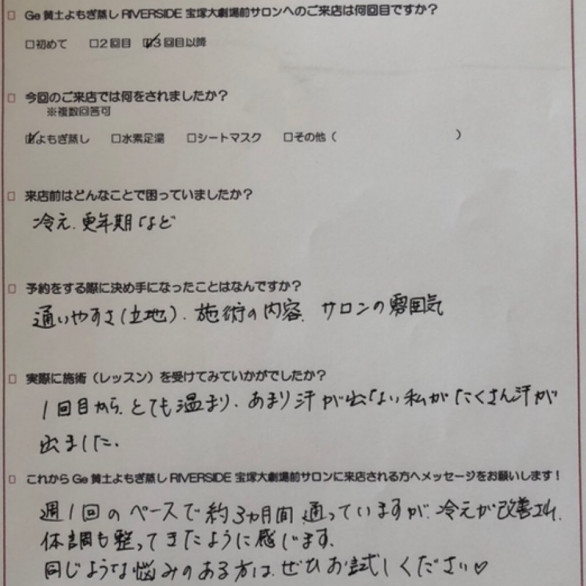 □ Ge黄土よもぎ蒸し RIVERSIDE 宝塚大劇場前サロンへのご来店は何回目ですか？
□初めて □2回目 ☑3回目以降
□ 今回のご来店では何をされましたか？
※複数回答可
☑よもぎ蒸し □水素足湯 □シートマスク □その他（ ）
□ 来店前はどんなことで困っていましたか？
冷え、更年期など
□ 予約をする際に決め手になったことはなんですか？
通いやすさ(立地)、施術の内容、サロンの雰囲気
□ 実際に施術（レッスン）を受けてみていかがでしたか？
1回目から、とても温まり、あまり汗が出ない私がたくさん汗が
出ました。
□ これからGe黄土よもぎ蒸し RIVERSIDE 宝塚大劇場前サロンに来店される方へメッセージをお願いします！
週1回のペースで約3ヵ月間通っていますが、冷えが改善され、
体調も整ってきたように感じます。
同じような悩みのある方は、ぜひお試しください♡